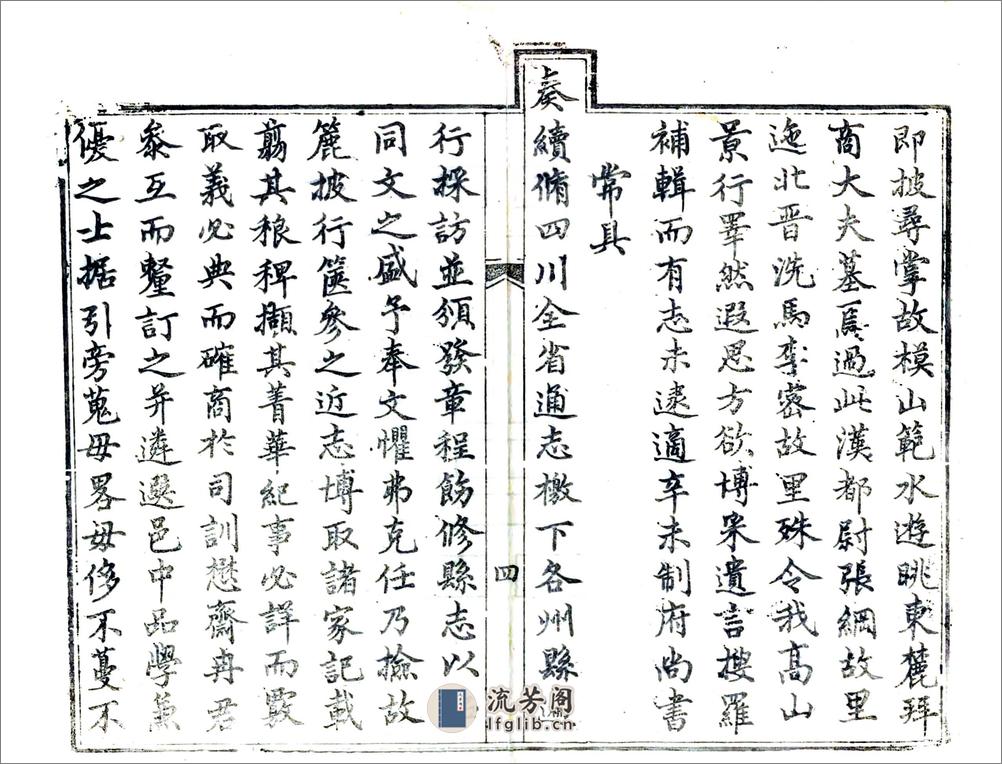 即披尋掌故模山範水遊眺東麓拜
商大夫墓焉過此漢都尉張綱故里
迤北晋洗馬李密故里殊令我高山
景行睪然遐思方欲博采遺言搜羅
補輯而有志未逮適辛未制府尚書
常具
奏續脩四川全省通志檄下各州縣
四
行採訪並頒發章程飭修縣志以
同文之盛予奉文懼弗克任乃撿故
簏披行篋參之近志博取諸家記載
翦其稂稗擷其菁華紀事必詳而覈
取義必典而確商於司訓懋齋冉君
叅互而釐訂之并遴選邑中品學兼
優之士据引旁蒐毋畧毋侈不蔓不
流芳阁
lfglib.cn